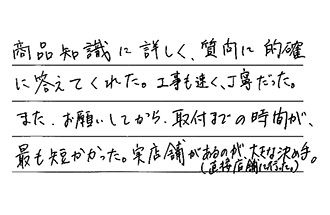 商品知識に詳しく、質問に的確
に答えてくれた。工事も速く、丁寧だった。
また、お願いしてから、取付までの時間が、
最も短かかった。実店舗があるのが、大きな決め手。
(直接店舗に行った。)